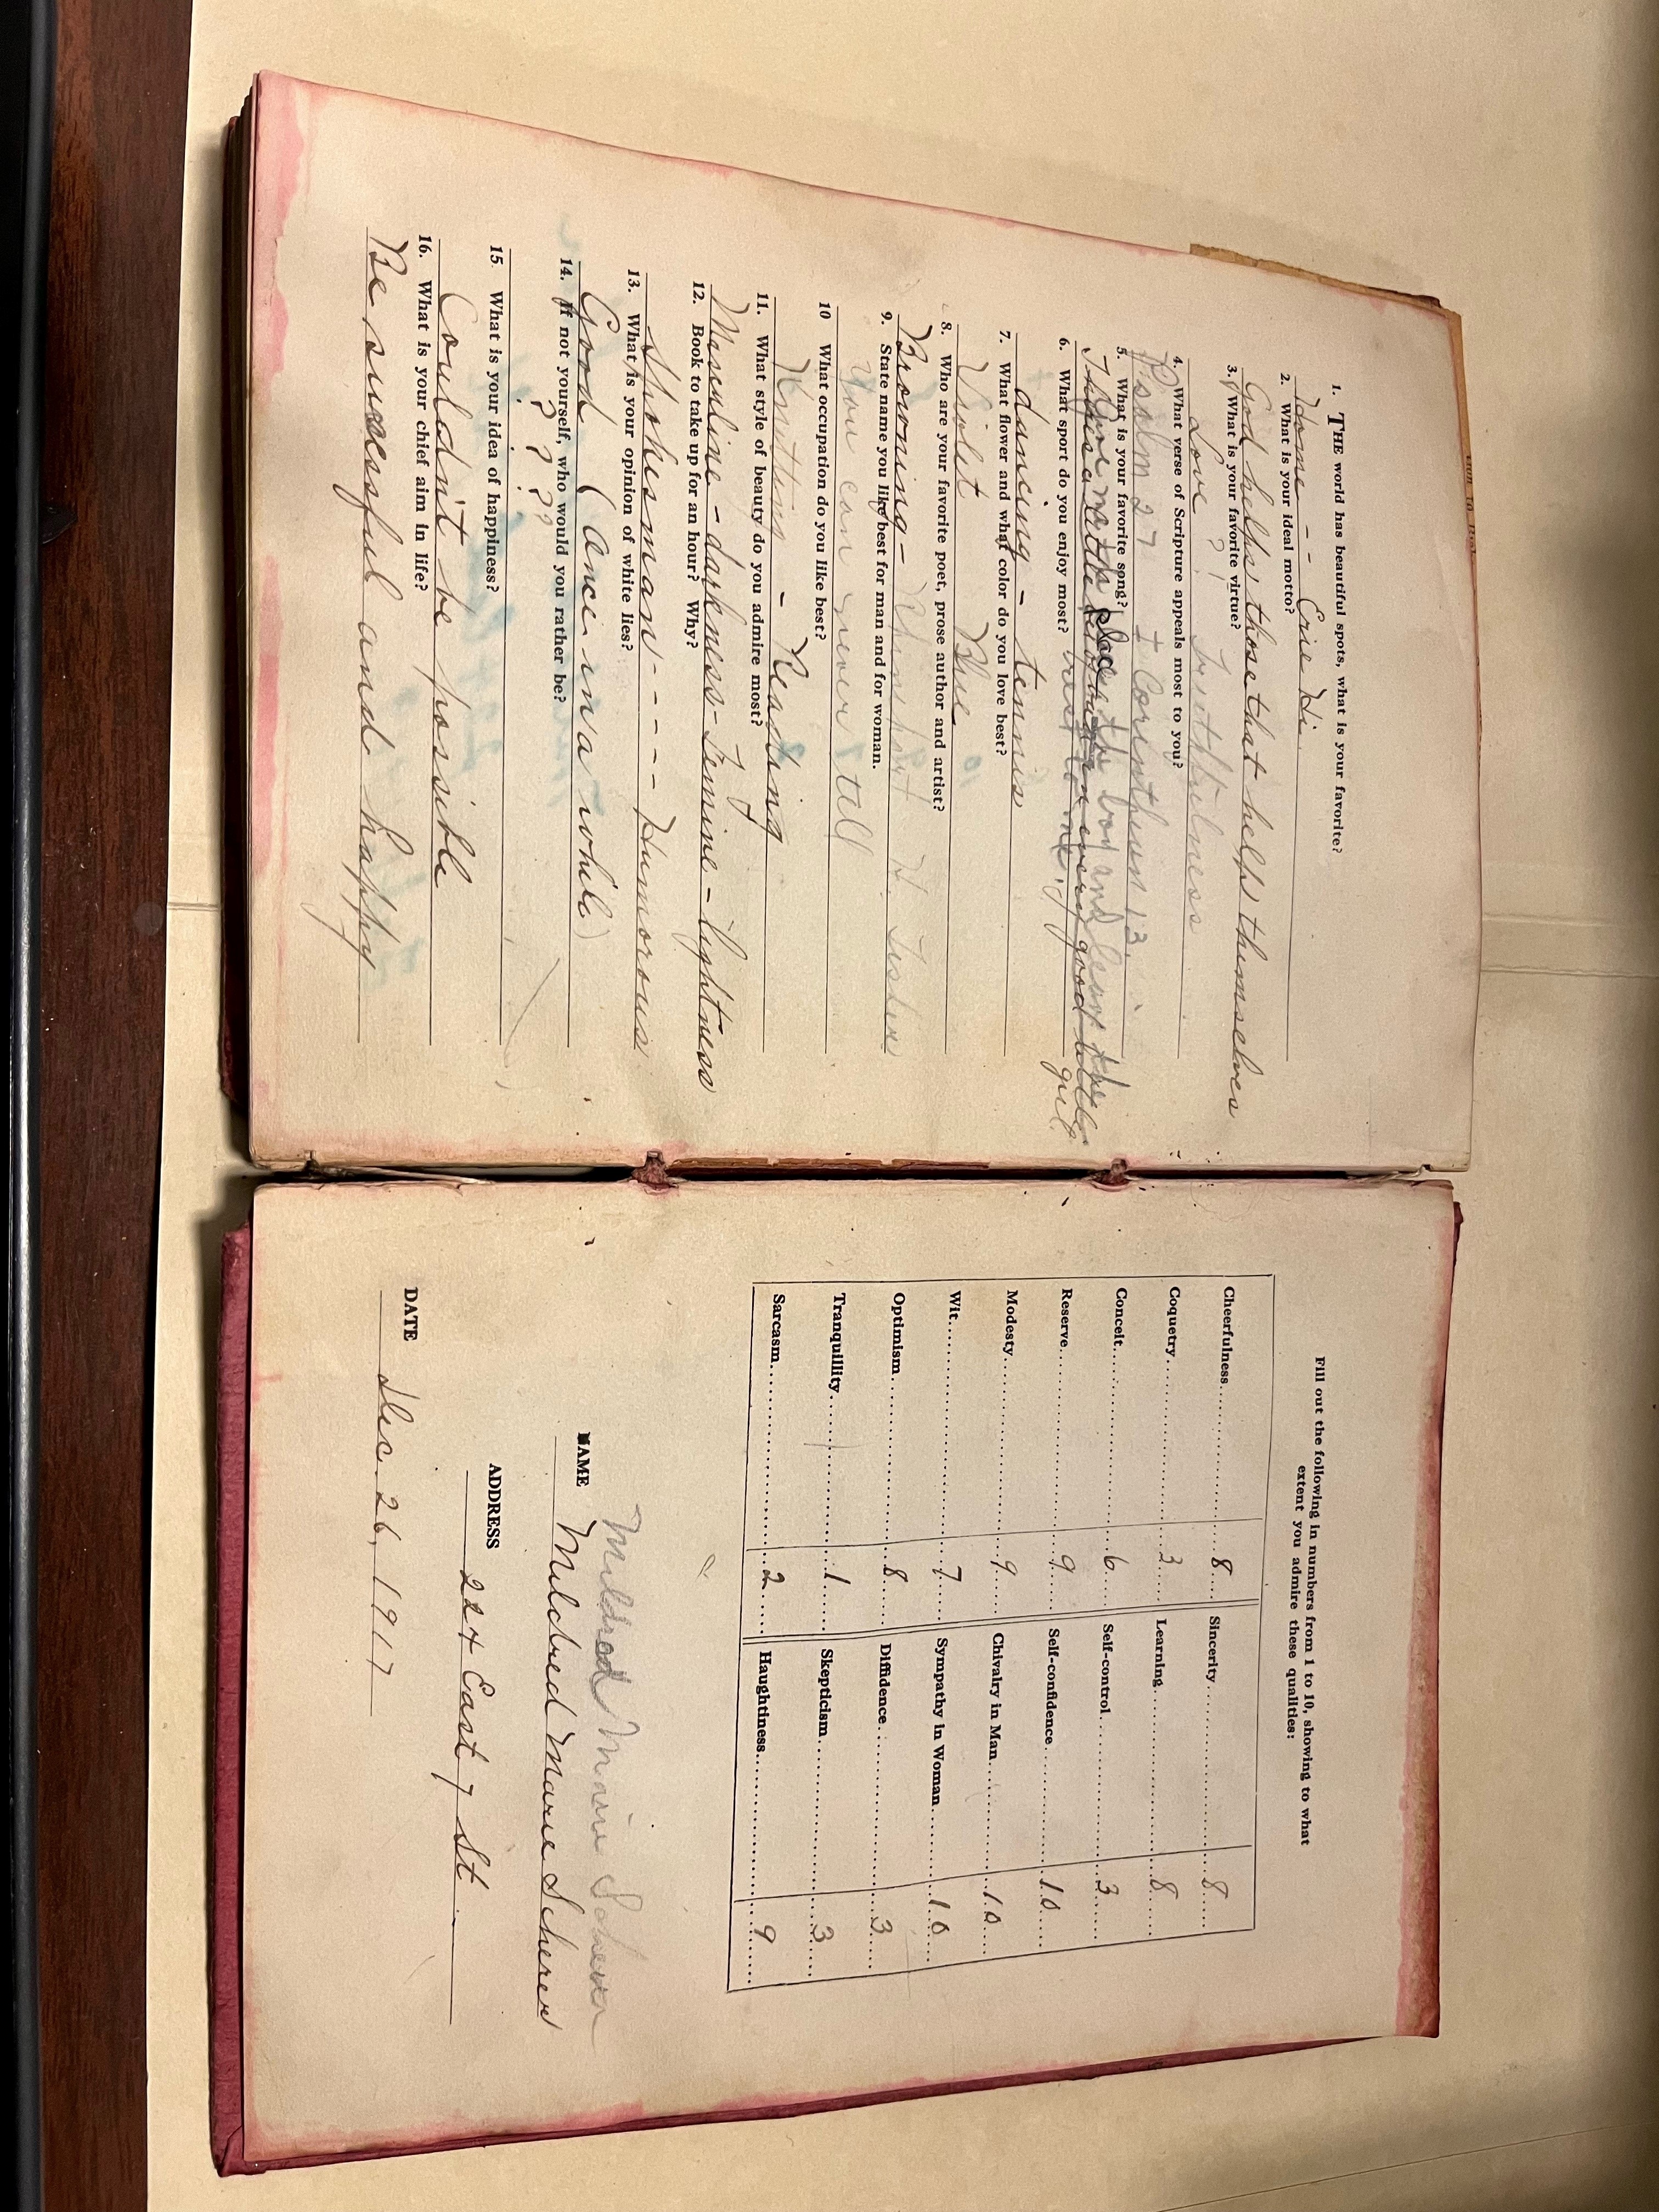 1. THE world has beautiful spots, what is your favorite?
Home - - Erie Hi.
2. What is your ideal motto?
God helps those that helps themselves
3. What is your favorite virtue?
Love ? ! Truthfulness
4. What verse of Scripture appeals most to you?
Psalm 27 I Corinthians 13.
5. What is your favorite song?
6. What sport do you enjoy most?
dancing - tennis
7. What flower and what color do you love best?
Violet Blue
8. Who are your favorite poet, prose author and artist?
Browning - Rhinehart H. Fisher
9. State name you like best for man and for woman.
You can never tell
10 What occupation do you like best?
Knitting - Reading
11. What style of beauty do you admire most?
Masculine - darkness - Feminine - lightness
12. Book to take up for an hour? Why?
Humorous
13. What is your opinion of white lies?
Good (once in a while)
14. If not yourself, who would you rather be?
? ? ??
15. What is your idea of happiness?
Couldn't be possible
16. What is your chief aim in life?
Be successful and happy
Fill out the following in numbers from 1 to 10, showing to what
extent you admire these qualities:
Cheerfulness 8 Sincerity 8
Coquetry 3 Learning 8
Conceit 6 Self-control 3
Reserve 9 Self-confidence 10
Modesty 9 Chivalry in Man 10
Wit 7 Sympathy in Woman 10
Optimism 8 Diffidence 3
Tranquillity 1 Skepticism 3
Sarcasm 2 Haughtiness 9
Mildred Marie Scherer
NAME Mildred Marie Scherer
ADDRESS 224 East 7 St.
DATE Dec. 26, 1917